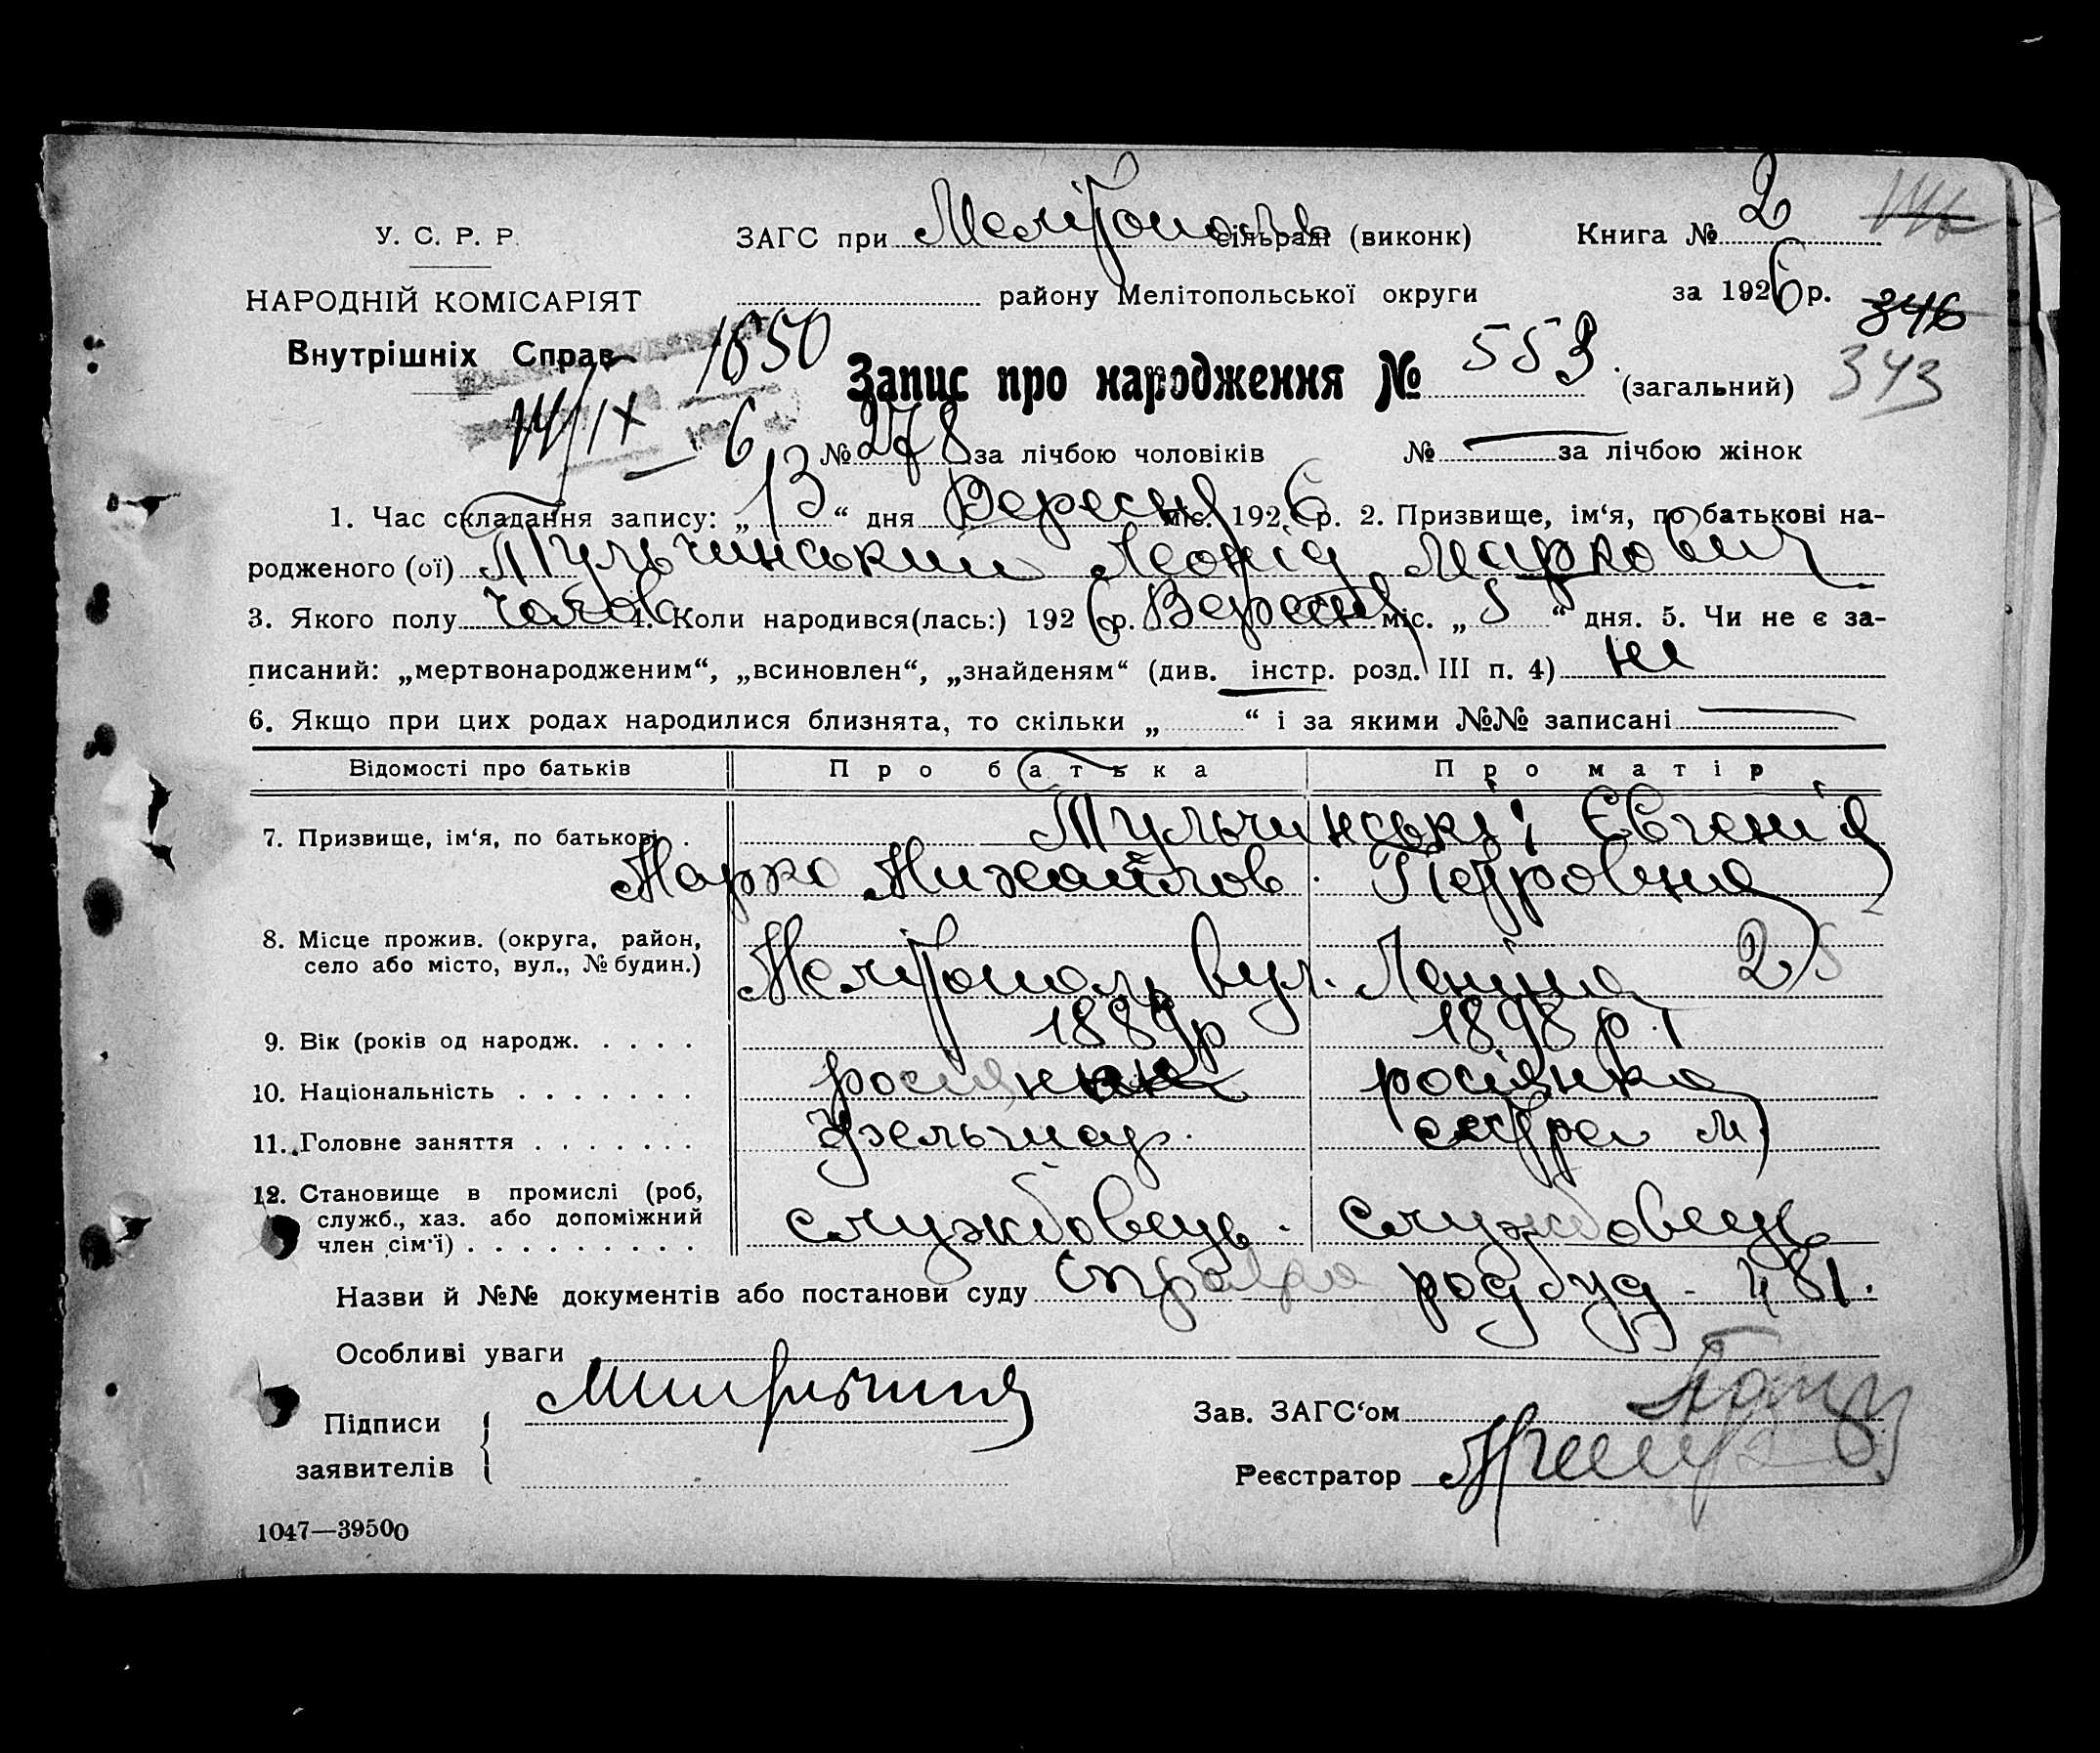 У. С. Р. Р.
НАРОДНІЙ КОМІСАРІЯТ
Внутрішніх Справ
ЗАГС при Мелітополь сільраді (виконк)
району Мелітопольської округи
Книга № 2
за 1926 р.
346
343
1850
Запис про народження № 553. (загальний)
№ 278 за лічбою чоловіків № — за лічбою жінок
1. Час складання запису: „13“ дня Вересня міс. 1926 р. 2. Призвище, ім‘я, по батькові на-
родженого (ої) Тульчинський Леонід Маркович
3. Якого полу чолов 4. Коли народився(лась:) 1926 р. Вересня міс. „5“ дня. 5. Чи не є за-
писаний: „мертвонародженим“, „всиновлен“, „знайденям“ (див. інстр. розд. III п. 4) ні
6. Якщо при цих родах народилися близнята, то скільки „ “ і за якими №№ записані —
Відомості про батьків Про батька Про матір
7. Призвище, ім‘я, по батькові . Тульчинські Євгенія
Марко Михайлов. Петровна
8. Місце прожив. (округа, район,
село або місто, вул., № будин.)
Мелітополь вул. Леніна 25
9. Вік (років од народж. . . . . 1889 р 1898 р.
10. Національність . . . . . . . росіянин росіянка
11. Головне заняття . . . . . . . Фельшар. сестра м
12. Становище в промислі (роб,
служб., хаз. або допоміжний
член сім‘ї) . . . . . . . . .
службовець. службовець
Назви й №№ документів або постанови суду справка родбуд. 481.
Особливі уваги
Підписи
заявителів
Зав. ЗАГС‘ом
Реєстратор
1047—39500